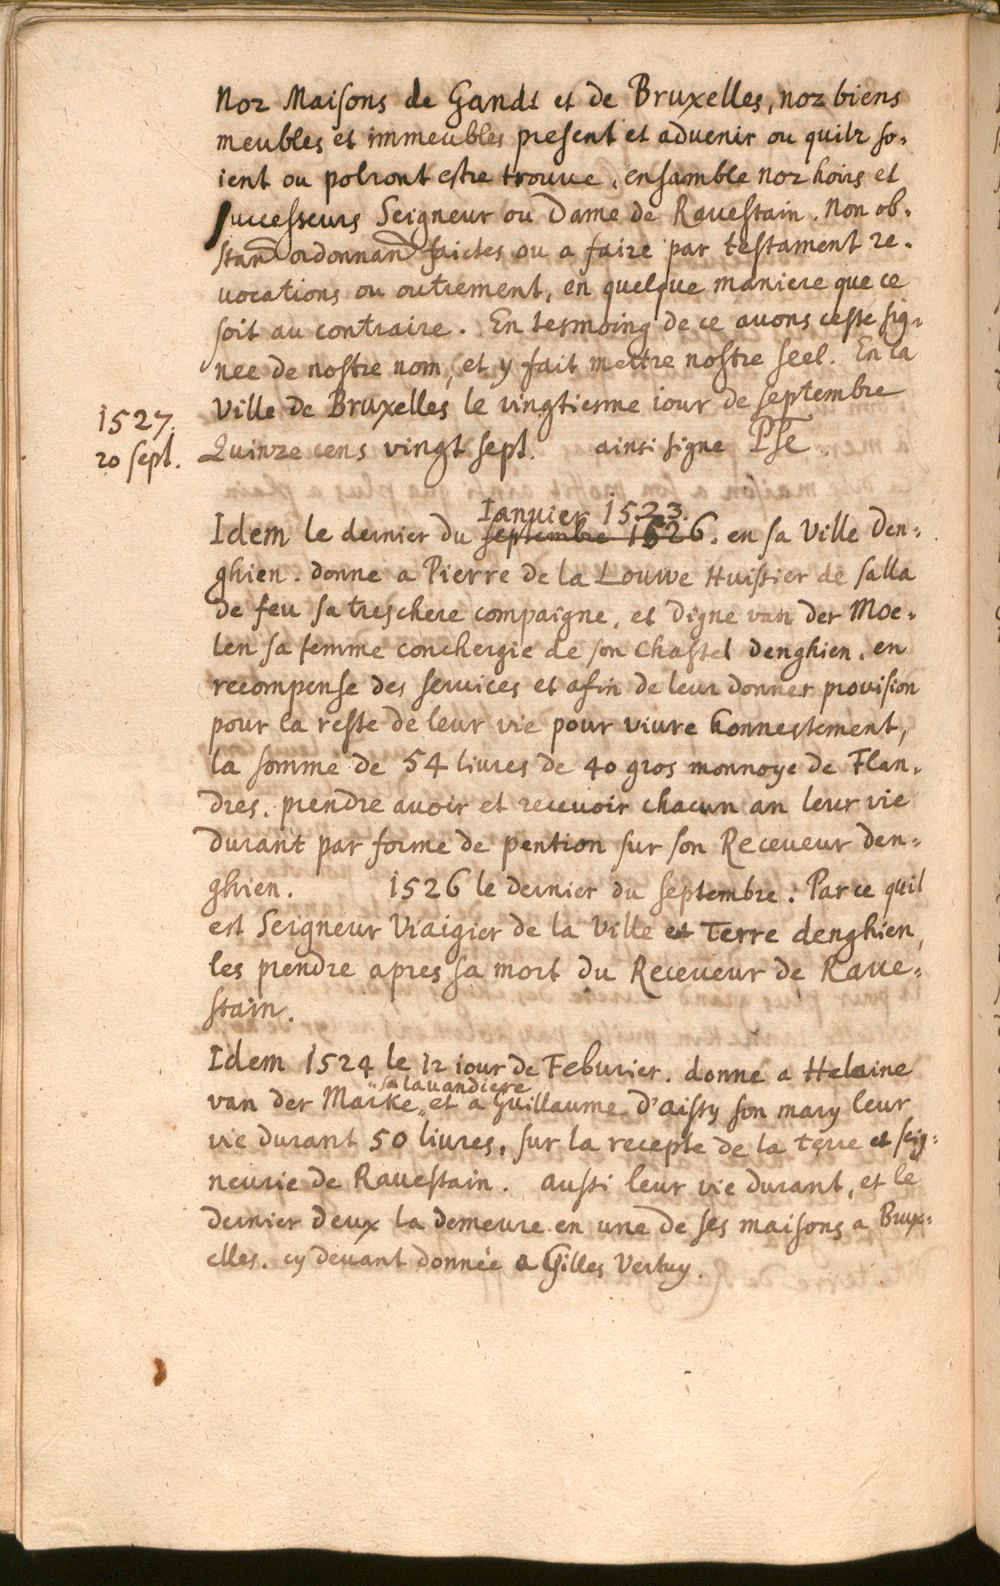 Noz Maisons de Gandt et de Bruxelles, noz biens
meubles et immeubles present et advenir ou quilz so=
ient ou polront estre trouve, ensamble noz hoirs et
successeurs Seigneur ou Dame de Ravestain. Non ob=
stan ordonnan faictes ou a faire par testament re=
vocations ou outrement, en quelque maniere que ce
soit au contraire. En tesmoing de ce avons ceste sig=
nee de nostre nom, et y fait mettre nostre seel. En la
Ville de Bruxelles le vingtiesme iour de septembre
1527.
20 sept.
Quinze cens vingt sept. ainsi signe Phe
Ianvier 1523.
Idem le dernier du septembre 1526. en sa Ville den=
ghien. donne a Pierre de la Louwe Huissier de salla
de feu sa treschere compaigne, et Digne van der Moe=
len sa femme conchergie de son Chastel denghien. en
recompense des services et afin de leur donner provision
pour la reste de leur vie pour vivre honnestement,
la somme de 54 livres de 40 gros monnoye de Flan=
dres. prendre avoir et recevoir chacun an leur vie
durant par forme de pention sur son Receveur den=
ghien. 1526 le dernier du septembre: Par ce quil
est Seigneur Viaigier de la Ville et Terre denghien,
les prendre apres sa mort du Receveur de Rave=
stain.
Idem 1524 le 12 iour de Feburier. donne a Helaine
" sa lavandiere
van der Marke " et a Guillaume d'aissy son mary leur
vie durant 50 livres, sur la recepte de la terre et seig=
neurie de Ravestain. aussi leur vie durant, et le
dernier deux la demeure en une de ses maisons a Brux=
elles. cy devant donnée a Gilles Vertuy.